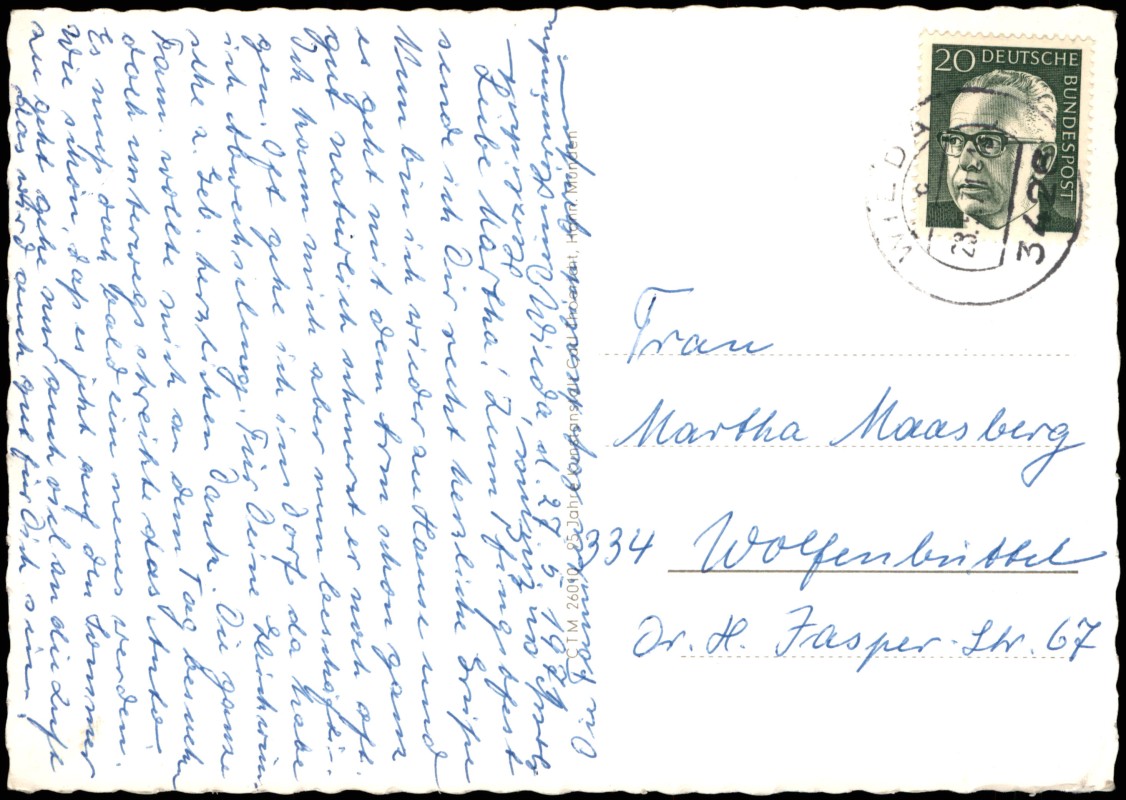 Wieda, d. 27. 5. 1971
Liebe Martha! Zum Pfingstfest
sende ich Dir recht herzliche Grüße
Nun bin ich wieder zu Hause und
es geht mit dem Arm schon ganz
gut natürlich schmerzt er noch oft.
Ich kann mich aber nun beschäfti-
gen. Oft gehe ich ins Dorf da habe
ich Abwechselung. Für Deine Glückwün-
sche z. Geb. herzlichen Dank. Die ganze
Fam. wollte mich an dem Tag besuchen
doch unterwegs streikte das Auto
Es muß doch bald ein neues werden.
Wie schön, daß es jetzt auf den Sommer
zu geht gehe nur auch viel an die Luft
das wird auch gut für Dich sein.
20 DEUTSCHE
BUNDESPOST
WIEDA
28.
3428
Frau
Martha Maasberg
334 Wolfenbüttel
Dr. H. Jasper-Str. 67
CTM 26010 95 Jahre Kunstanstalt Carl Thoericht, Hann. Münden